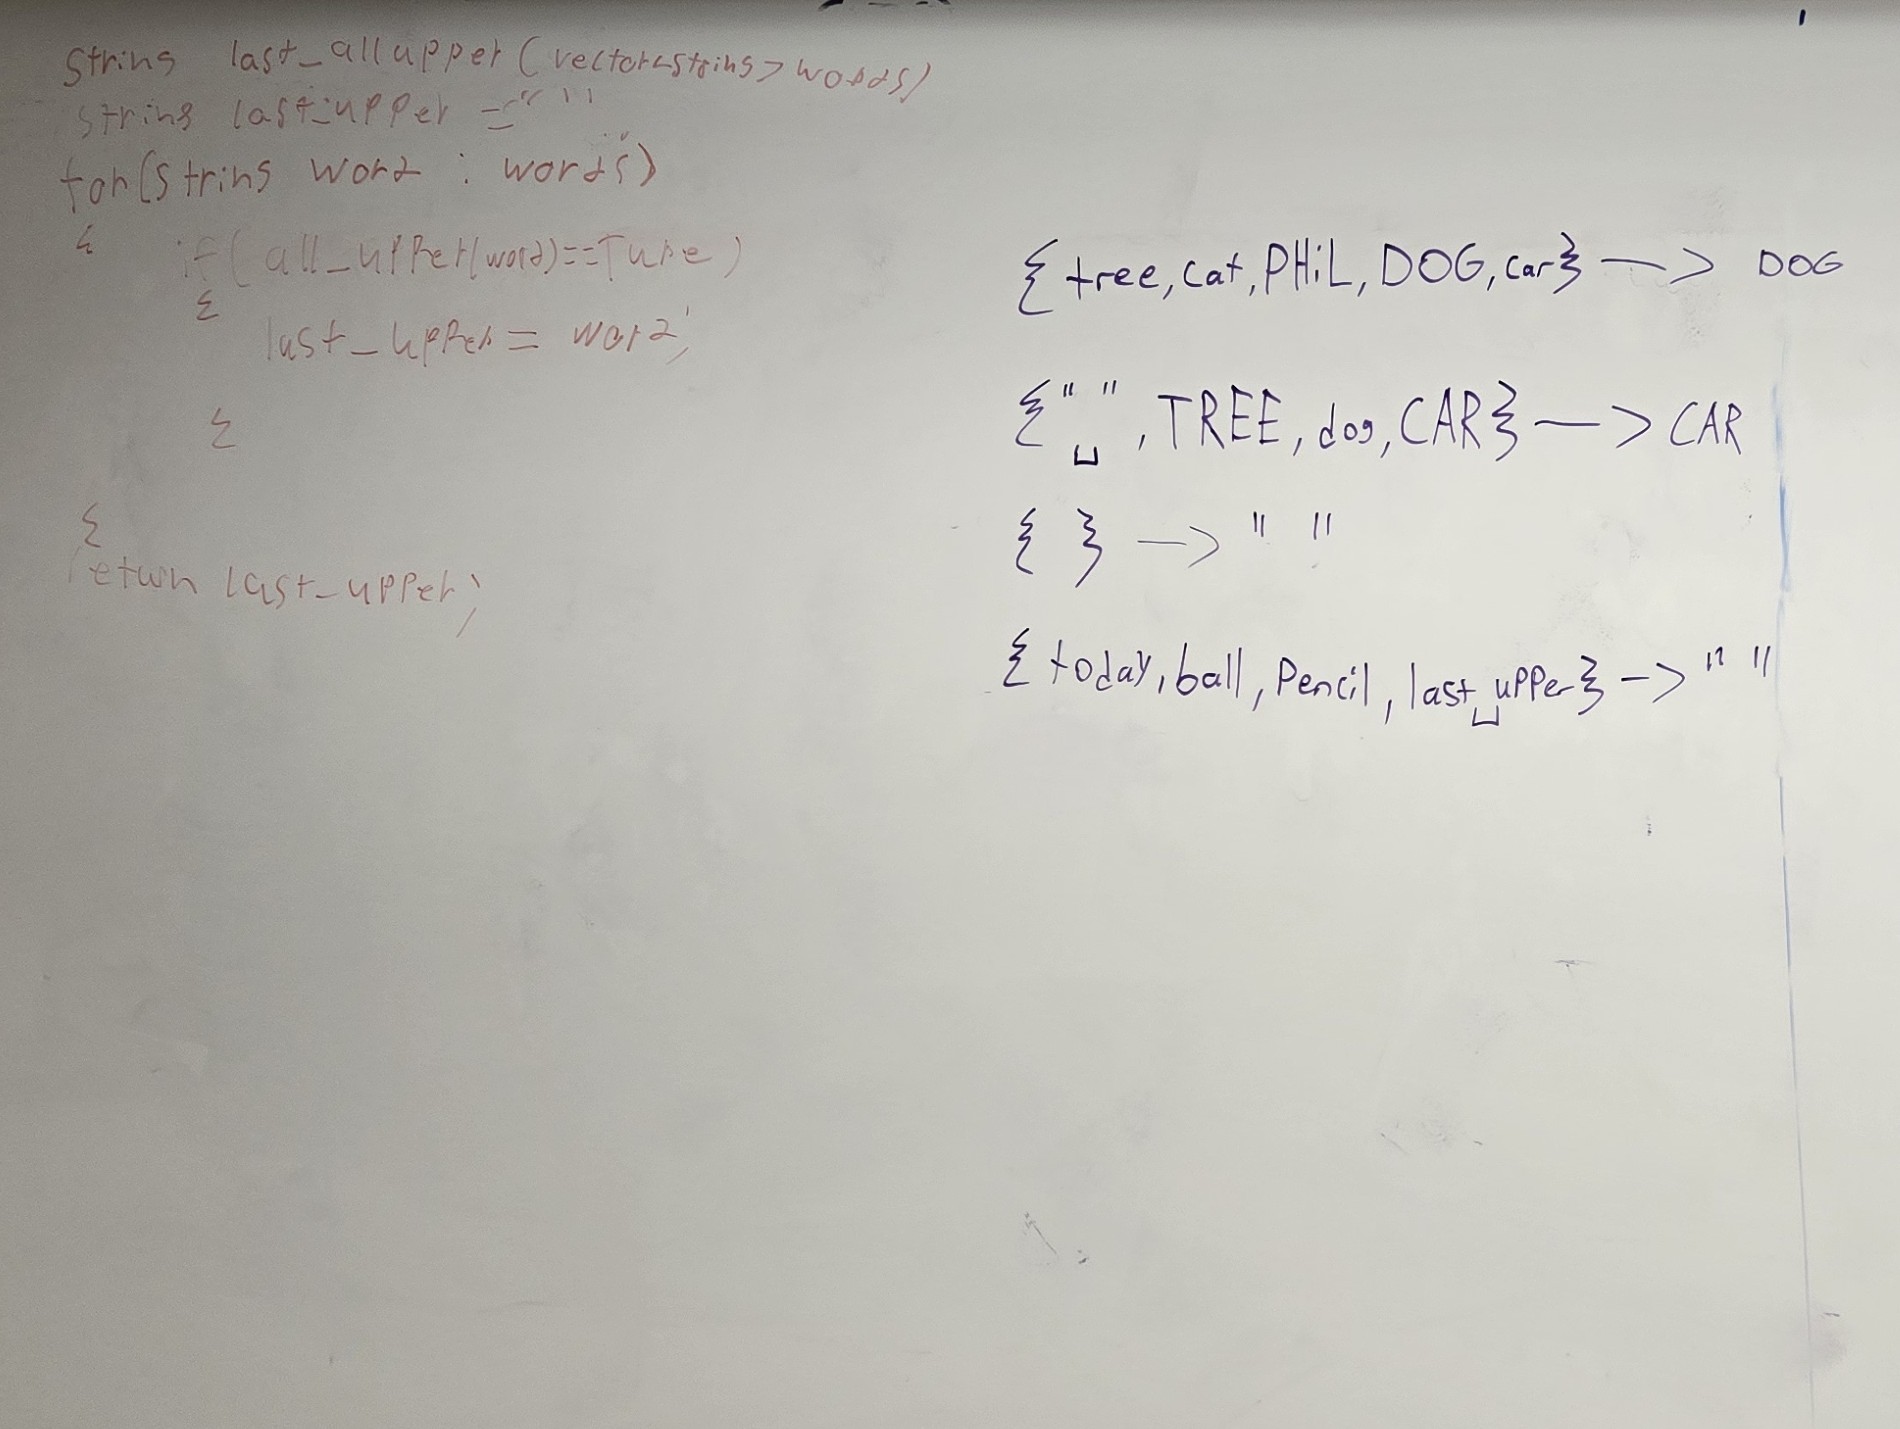 string last_allupper(vector<string> words)
string last_upper = " "
for(string word : words)
{ if( all_upper(word)==Ture)
{
last_upper = word;
{
{
return last_upper;
{ tree, cat, PHiL, DOG, car} —> DOG
{"␣", TREE, dog, CAR} —> CAR
{ } —> " "
{ today, ball, Pencil, last␣upper} —> " "